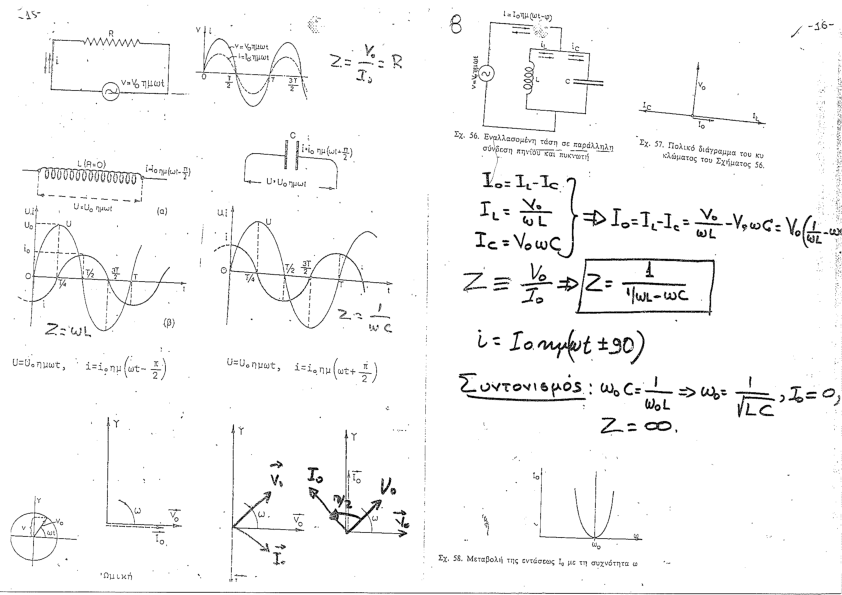 -15-
R
i
v=V₀ημωt
v i
v=V₀ημωt
i=I₀ημωt
0 T/2 T 3T/2 t
Z = V₀/I₀ = R
L(R=0)
i=i₀ημ(ωt-π/2)
U=U₀ημωt
(α)
C
i=i₀ημ(ωt+π/2)
U=U₀ημωt
u,i
U₀
i₀
U
i
0 T/4 T/2 3T/2 T t
Z=ωL
(β)
u,i
U
i
0 T/4 T/2 3T/2 T t
Z = 1/ωC
U=U₀ημωt, i=i₀ημ(ωt-π/2)
U=U₀ημωt, i=i₀ημ(ωt+π/2)
Y
v V₀
ωt
Y
ω
V₀
I₀
Ωμική
Y
V₀
ω
V₀
I₀
Y
I₀
I₀ π/2 V₀
ω
V₀
8
-16-
i=I₀ημ(ωt-φ)
v=V₀ημωt
i_L i_C
L C
Σχ. 56. Εναλλασομένη τάση σε παράλληλη
σύνδεση πηνίου και πυκνωτή
V₀
I_C I_L
I₀
Σχ. 57. Πολικό διάγραμμα του κυ
κλώματος του Σχήματος 56.
I₀=I_L-I_C
I_L = V₀/ωL
I_C = V₀ωC
⇒ I₀=I_L-I_C = V₀/ωL - V₀ωC = V₀(1/ωL - ω
Z ≡ V₀/I₀ ⇒ Z = 1/(1/ωL-ωC)
i = I₀ημ(ωt ±90)
Συντονισμός: ω₀C = 1/ω₀L ⇒ ω₀ = 1/√LC, I₀=0,
Z = ∞.
I₀
ω₀
Σχ. 58. Μεταβολή της εντάσεως I₀ με τη συχνότητα ω